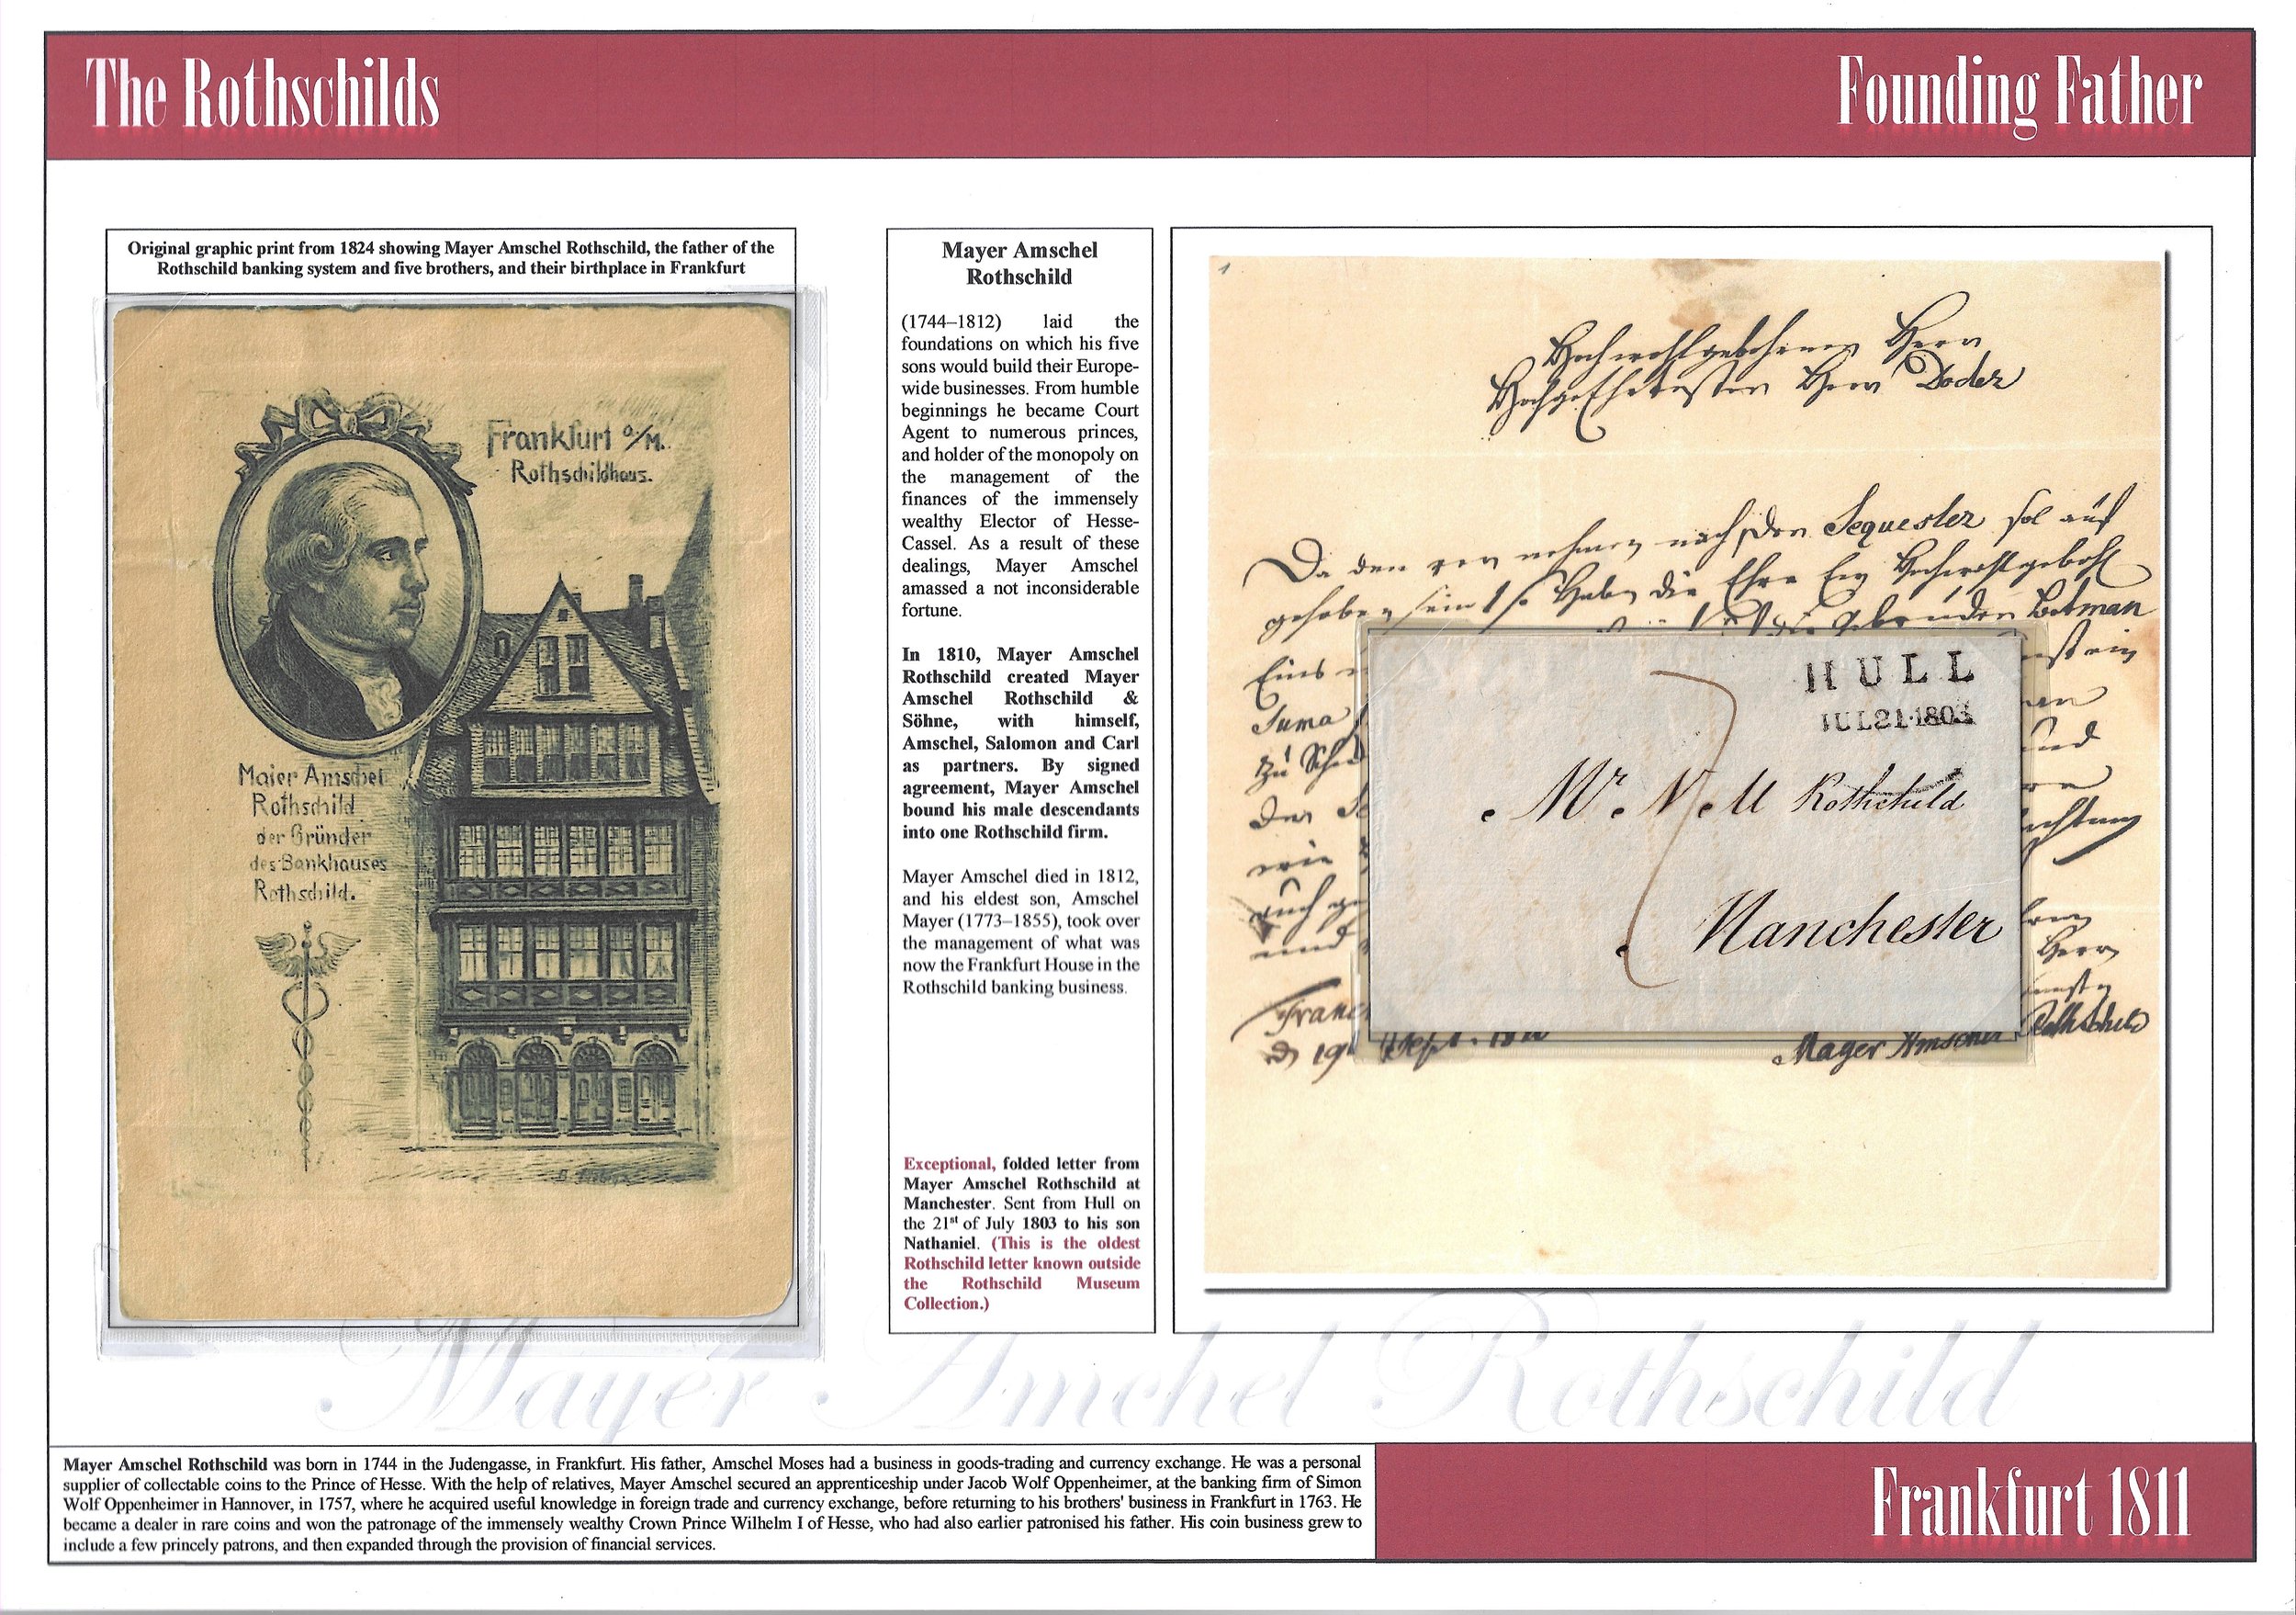 The Rothschilds
Founding Father
Original graphic print from 1824 showing Mayer Amschel Rothschild, the father of the
Rothschild banking system and five brothers, and their birthplace in Frankfurt
Frankfurt a/M.
Rothschildhaus.
Maier Amschel
Rothschild
der Gründer
des Bankhauses
Rothschild.
Mayer Amschel
Rothschild
(1744–1812) laid the
foundations on which his five
sons would build their Europe-
wide businesses. From humble
beginnings he became Court
Agent to numerous princes,
and holder of the monopoly on
the management of the
finances of the immensely
wealthy Elector of Hesse-
Cassel. As a result of these
dealings, Mayer Amschel
amassed a not inconsiderable
fortune.
In 1810, Mayer Amschel
Rothschild created Mayer
Amschel Rothschild &
Söhne, with himself,
Amschel, Salomon and Carl
as partners. By signed
agreement, Mayer Amschel
bound his male descendants
into one Rothschild firm.
Mayer Amschel died in 1812,
and his eldest son, Amschel
Mayer (1773–1855), took over
the management of what was
now the Frankfurt House in the
Rothschild banking business.
Exceptional, folded letter from
Mayer Amschel Rothschild at
Manchester. Sent from Hull on
the 21st of July 1803 to his son
Nathaniel. (This is the oldest
Rothschild letter known outside
the Rothschild Museum
Collection.)
Hochwohlgebohrener Herr
Herr Doder
Da den nehmen nach den Sequester sol auf
gehoben sein Habe die Ehre
Betman
Suma
und
Herr
Mayer Amschel Rothschild
HULL
JUL21·1803
Mr. N. M Rothchild
Manchester
Mayer Amchel Rothschild
Mayer Amschel Rothschild was born in 1744 in the Judengasse, in Frankfurt. His father, Amschel Moses had a business in goods-trading and currency exchange. He was a personal
supplier of collectable coins to the Prince of Hesse. With the help of relatives, Mayer Amschel secured an apprenticeship under Jacob Wolf Oppenheimer, at the banking firm of Simon
Wolf Oppenheimer in Hannover, in 1757, where he acquired useful knowledge in foreign trade and currency exchange, before returning to his brothers' business in Frankfurt in 1763. He
became a dealer in rare coins and won the patronage of the immensely wealthy Crown Prince Wilhelm I of Hesse, who had also earlier patronised his father. His coin business grew to
include a few princely patrons, and then expanded through the provision of financial services.
Frankfurt 1811